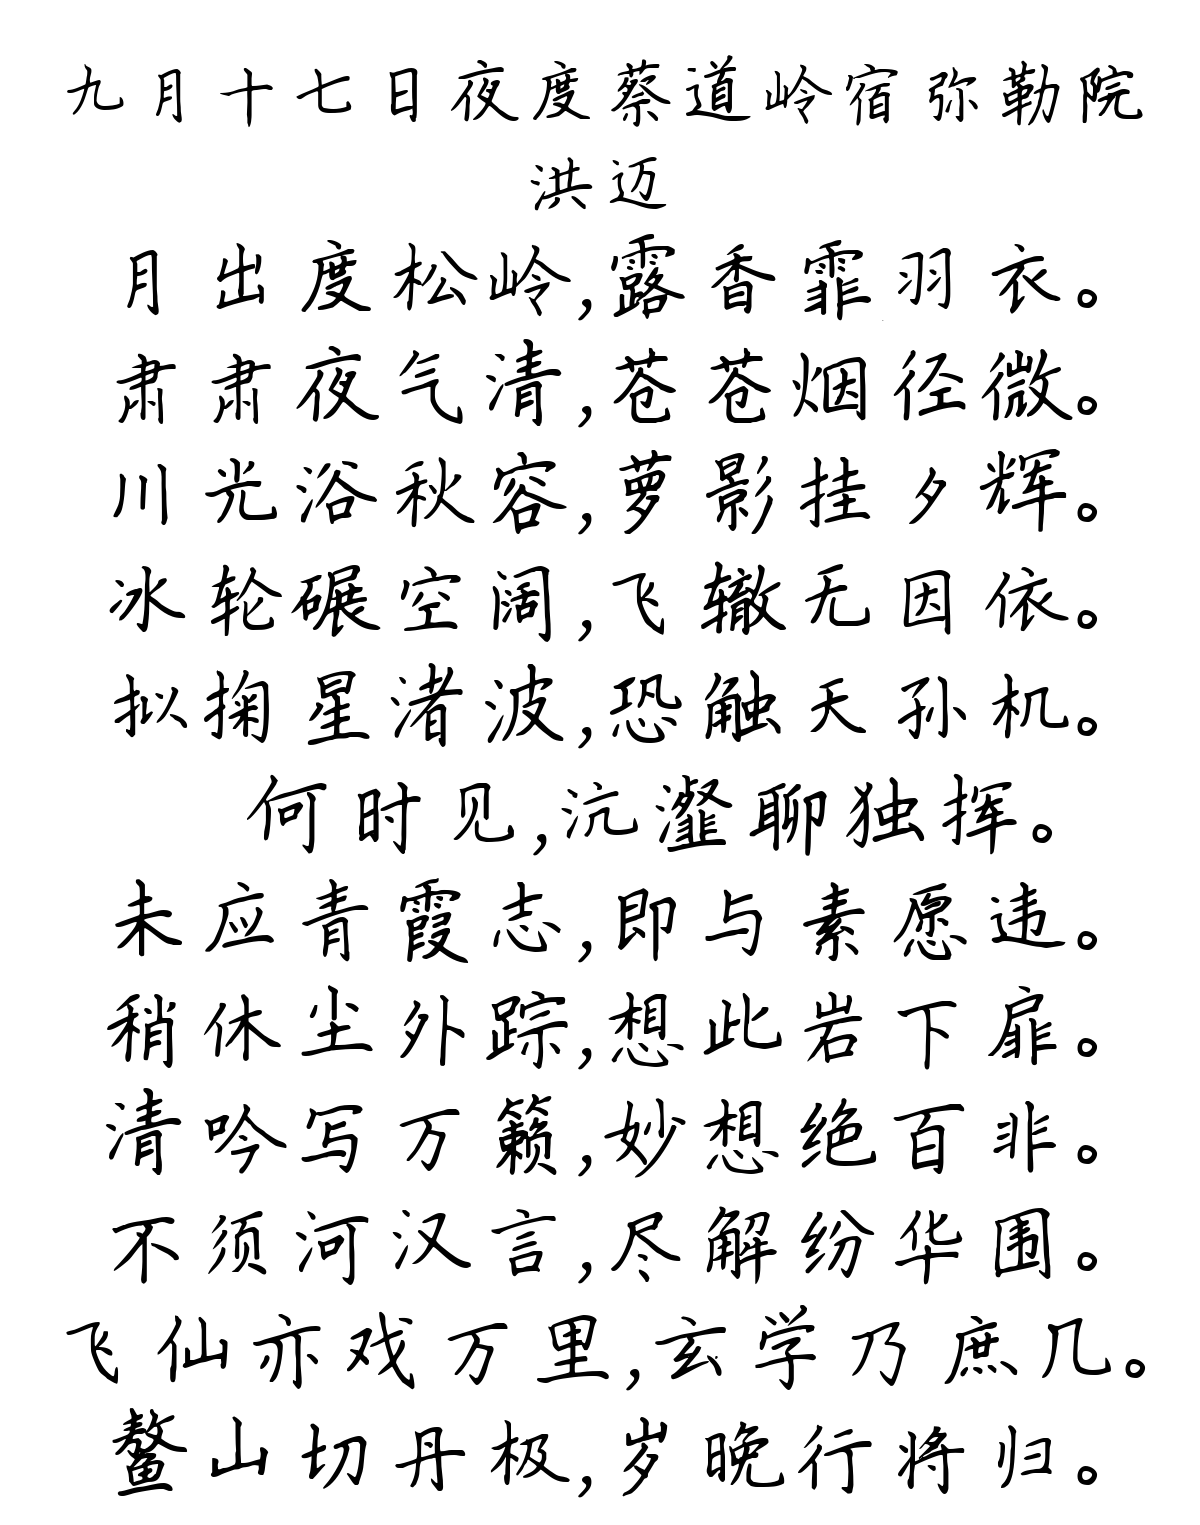 九月十七日夜度蔡道岭宿弥勒院
洪迈
月出度松岭,露香霏羽衣。
肃肃夜气清,苍苍烟径微。
川光浴秋容,萝影挂夕辉。
冰轮碾空阔,飞辙无因依。
拟掬星渚波,恐触天孙机。
何时见,沆瀣聊独挥。
未应青霞志,即与素愿违。
稍休尘外踪,想此岩下扉。
清吟写万籁,妙想绝百非。
不须河汉言,尽解纷华围。
飞仙亦戏万里,玄学乃庶几。
鳌山切丹极,岁晚行将归。